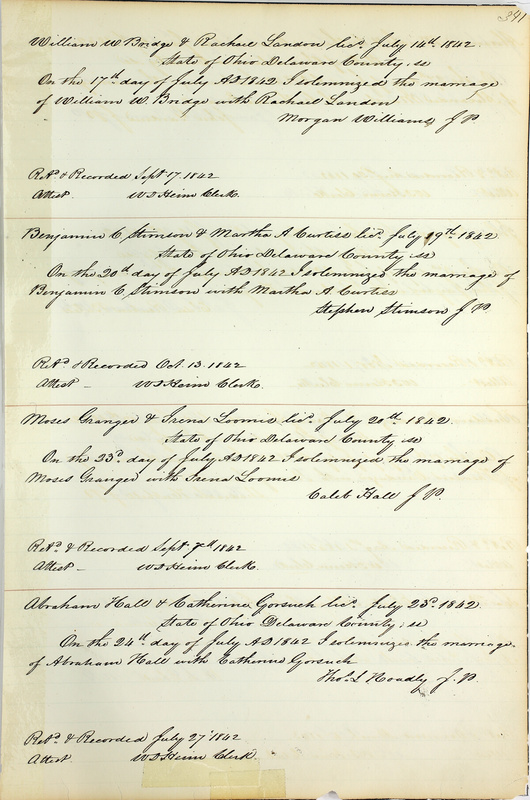 391
William W Bridge & Rachael Landon lic.d July 14th 1842
State of Ohio Delaware County, ss
On the 17th day of July AD 1842 I solemnized the marriage
of William W. Bridge with Rachael Landon
Morgan Williams J P.
Ret.d & Recorded Sept 17. 1842
Attest. W D Heim Clerk.
Benjamin C Stimson & Martha A Curtiss lic.d July 19th 1842
State of Ohio Delaware County ss
On the 20th day of July AD 1842 I solemnized the marriage of
Benjamin C, Stimson with Martha A. Curtiss
Stephen Stimson J P
Ret.d & Recorded Oct. 13. 1842
Attest – W D Heim Clerk.
Moses Granger & Irena Loomis lic.d July 20th 1842
State of Ohio Delaware County ss
On the 23d day of July AD 1842 I solemnized the marriage of
Moses Granger with Irena Loomis
Caleb Hall J P.
Ret.d & Recorded Sept 7th 1842
Attest – W D Heim Clerk.
Abraham Hall & Catherine Gorsuch lic.d July 23d 1842
State of Ohio Delaware County, ss
On the 24th day of July AD 1842 I solemnized the marriage
of Abraham Hall with Catherine Gorsuch
Tho.s L Hoadly J. P.
Ret.d & Recorded July 27 1842
Attest W D Heim Clerk.